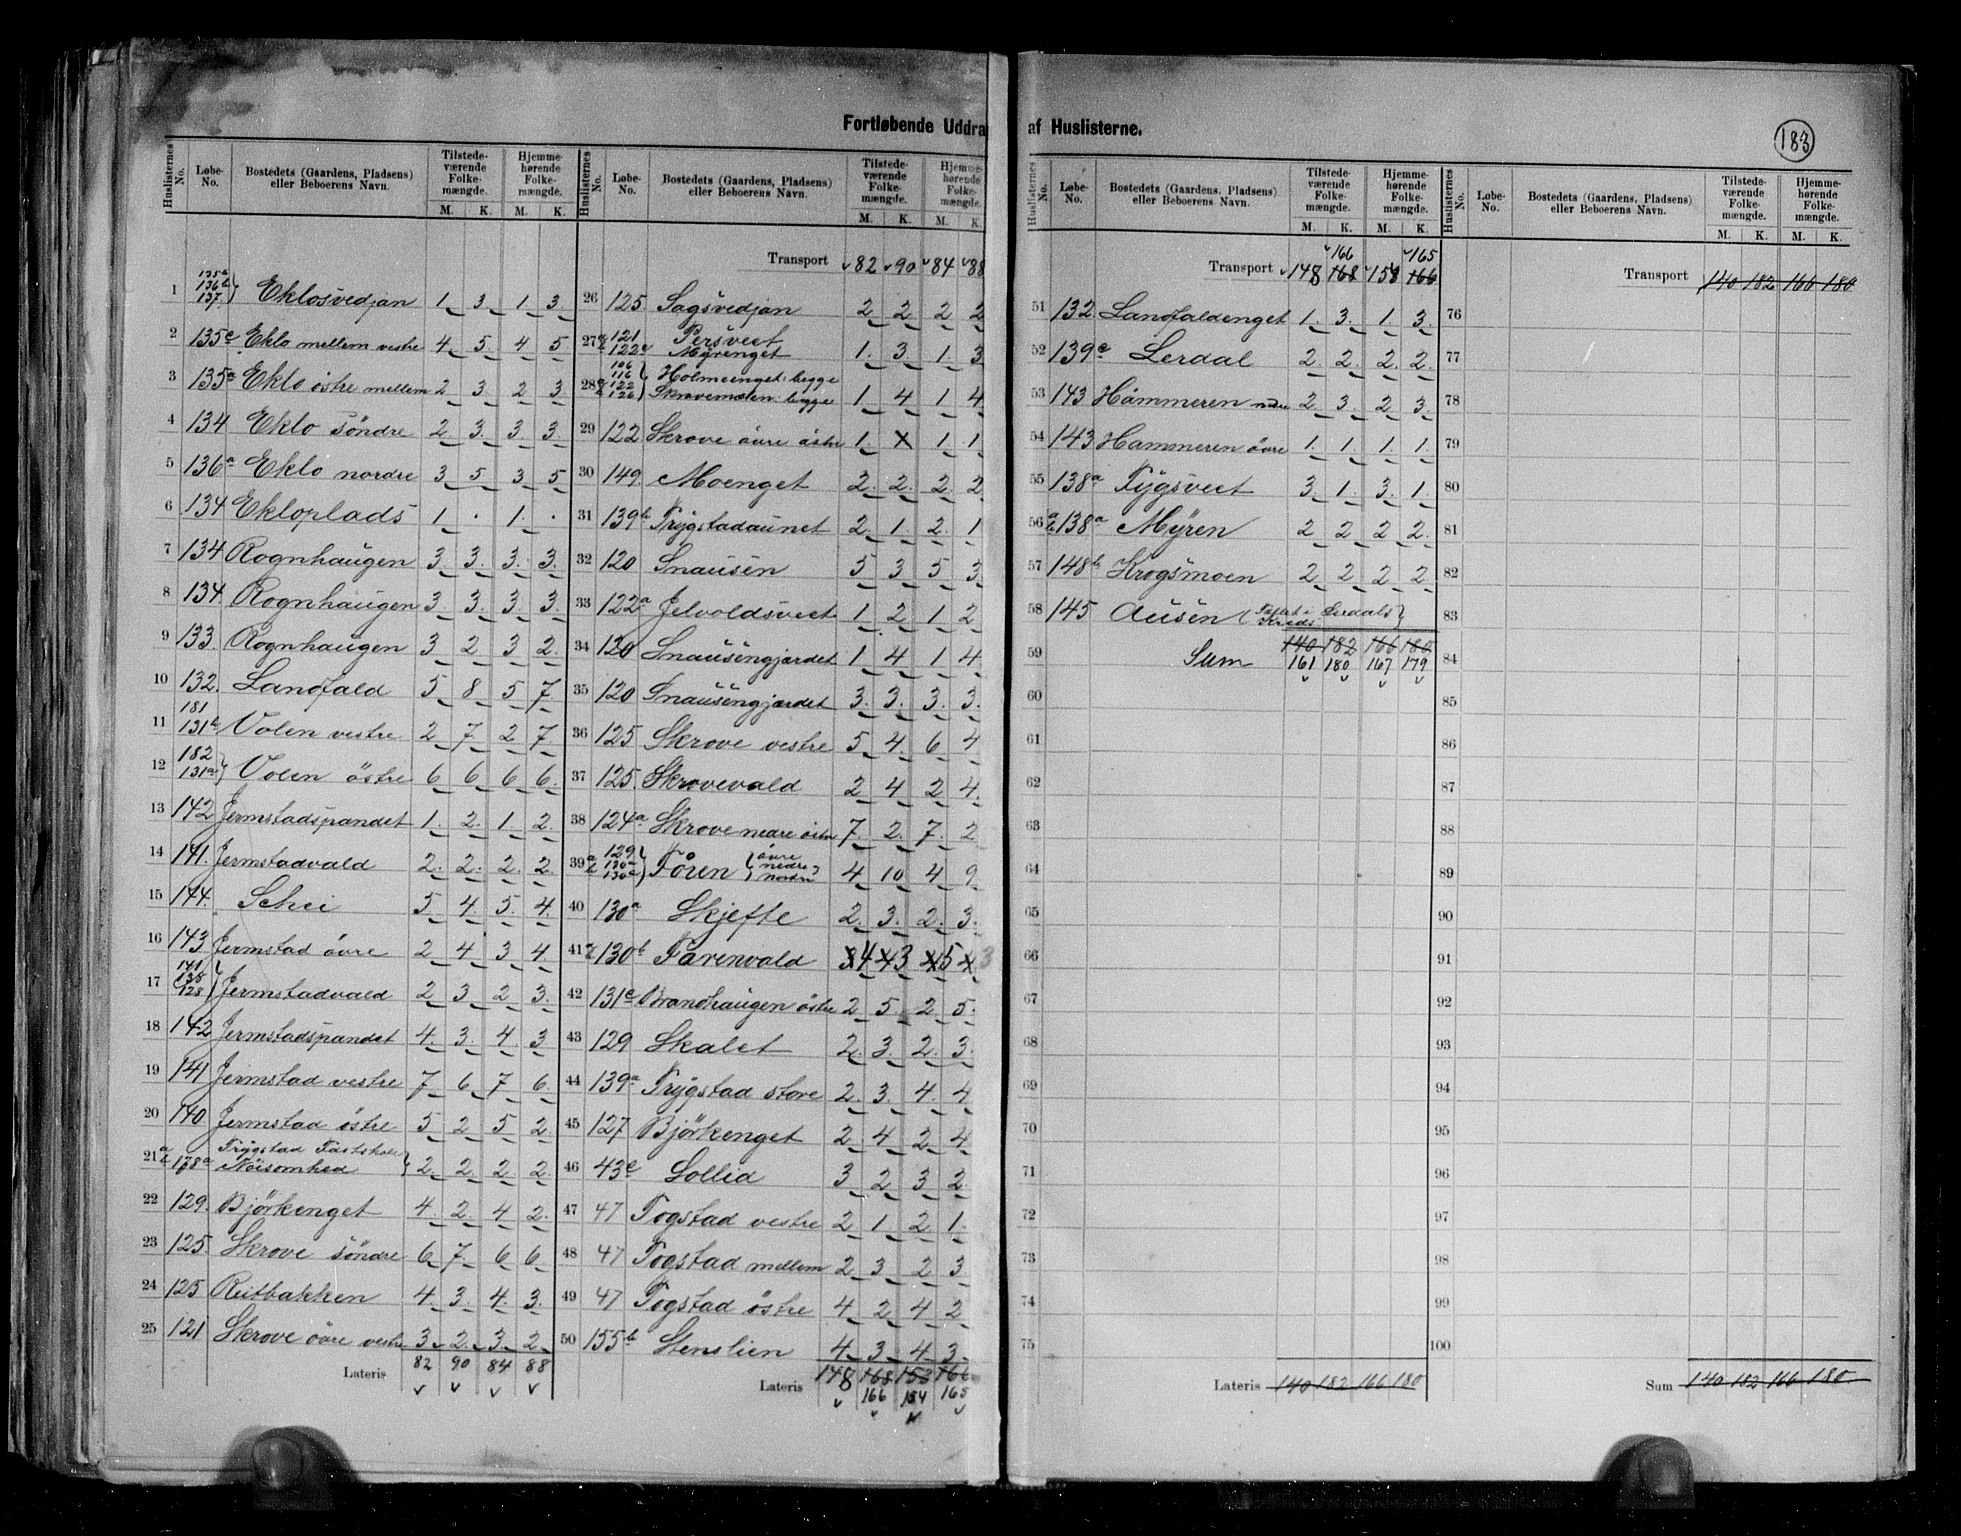 Fortløbende Uddra af Huslisterne.
183
Huslisternes No. Løbe-No. Bostedets (Gaardens, Pladsens) eller Beboerens Navn. Tilstedeværende Folkemængde. M. K. Hjemmehørende Folkemængde. M. K.
1 Eklosvedjan 1 3 1 3
2 135c Eklo mellem vestre 4 5 4 5
3 135a Eklo östre mellem 2 3 2 3
4 134 Eklo söndre 2 3 3 3
5 136a Eklo nordre 3 5 3 5
6 134 Ekloplads 1 . 1 .
7 134 Rognhaugen 3 3 3 3
8 134 Rognhaugen 3 3 3 3
9 133 Rognhaugen 3 2 3 2
10 132 Landfald 5 8 5 7
11 181 131b Volen vestre 2 7 2 7
12 182 131a Volen östre 6 6 6 6
13 142 Jermstadspandet 1 2 1 2
14 141 Jermstadvald 2 2 2 2
15 144 Schei 5 4 5 4
16 143 Jermstad övre 2 4 3 4
17 141 138 128 Jermstadvald 2 3 2 3
18 142 Jermstadspandet 4 3 4 3
19 141 Jermstad vestre 7 6 7 6
20 140 Jermstad östre 5 2 5 2
21 a b Trygstad
138a Nöisomhed 2 2 2 2
22 129 Björkenget 4 2 4 2
23 125 Skrove söndre 6 7 6 6
24 125 Reitbakken 4 3 4 3
25 121 Skrove övre vestre 3 2 3 2
Lateris 82 90 84 88
Huslisternes No. Løbe-No. Bostedets (Gaardens, Pladsens) eller Beboerens Navn. Tilstedeværende Folkemængde. M. K. Hjemmehørende Folkemængde. M. K.
Transport 82 90 84 88
26 125 Sagsvedjan 2 2 2 2
27 a b 121 Persveet
122c Myrenget 1 3 1 3
28 a b 106 116 Holmenget begge
122 126 Skrovemoen begge 1 4 1 4
29 122 Skrove övre östre 1 x 1 1
30 149 Moenget 2 2 2 2
31 139b Trygstadaunet 2 1 2 1
32 120 Snausen 5 3 5 3
33 122a Jelvoldsveet 1 2 1 2
34 120 Snausengjærdet 1 4 1 4
35 120 Snausengjærdet 3 3 3 3
36 125 Skrove vestre 5 4 6 4
37 125 Skrovevald 2 4 2 4
38 124a Skrove nedre östre 7 2 7 2
39 a b 129 130 130c Fören övre nedre nordre 4 10 4 9
40 130a Skjefte 2 3 2 3
41 130b Färenvald 4 3 5 3
42 131c Brandhaugen östre 2 5 2 5
43 129 Skalet 2 3 2 3
44 139a Trygstad store 2 3 4 4
45 127 Björkenget 2 4 2 4
46 43c Sollid 3 2 3 2
47 47 Togstad vestre 2 1 2 1
48 47 Togstad mellem 2 3 2 3
49 47 Togstad östre 4 2 4 2
50 155b Stenslien 4 3 4 3
Lateris 148 168 153 166
166 154 165
Huslisternes No. Løbe-No. Bostedets (Gaardens, Pladsens) eller Beboerens Navn. Tilstedeværende Folkemængde. M. K. Hjemmehørende Folkemængde. M. K.
166 165
Transport 148 168 158 166
51 132 Landfaldenget 1 3 1 3
52 139c Lerdal 2 2 2 2
53 143 Hammeren nedre 2 3 2 3
54 143 Hammeren övre 1 1 1 1
55 138a Tygsveet 3 1 3 1
56 a b 138a Myren 2 2 2 2
57 148b Krogsmoen 2 2 2 2
58 145 Ausen Lerdals Kreds
59 140 182 166 180
Sum 161 180 167 179
60
61
62
63
64
65
66
67
68
69
70
71
72
73
74
75
Lateris 140 182 166 180
Huslisternes No. Løbe-No. Bostedets (Gaardens, Pladsens) eller Beboerens Navn. Tilstedeværende Folkemængde. M. K. Hjemmehørende Folkemængde. M. K.
Transport 140 182 166 180
76
77
78
79
80
81
82
83
84
85
86
87
88
89
90
91
92
93
94
95
96
97
98
99
100
Sum 140 182 166 180